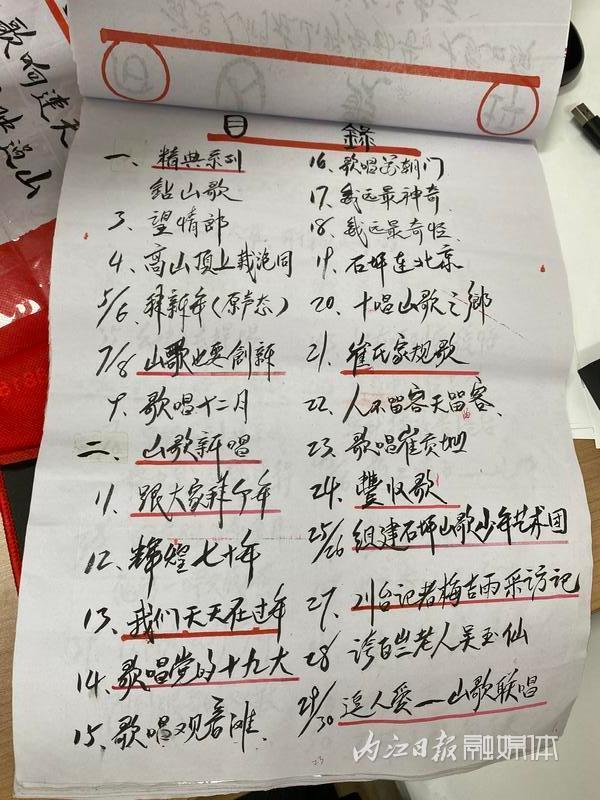 歌响连天
目錄
一、精典系列
鉆山歌
3、望情郎
4、高山顶上栽泡同
5/6、拜新年(原声态)
7/8、山歌也要創新
9、歌唱十二月
二、山歌新唱
11、跟大家拜个年
12、辉煌七十年
13、我们天天在过年
14、歌唱党的十九大
15、歌唱观音滩
16、歌唱朝门
17、我远最神奇
18、我远最奇怪
19、石坪连北京
20、十唱山歌之鄉
21、崔氏家规歌
22、人不留客天留客
23、歌唱崔贡坳
24、豐收歌
25/26、组建石坪山歌少年艺术团
27、川台记者梅吉雨采访记
28、诗百岁老人吴玉仙
29/30、逗人爱——山歌联唱
内江日报融媒体